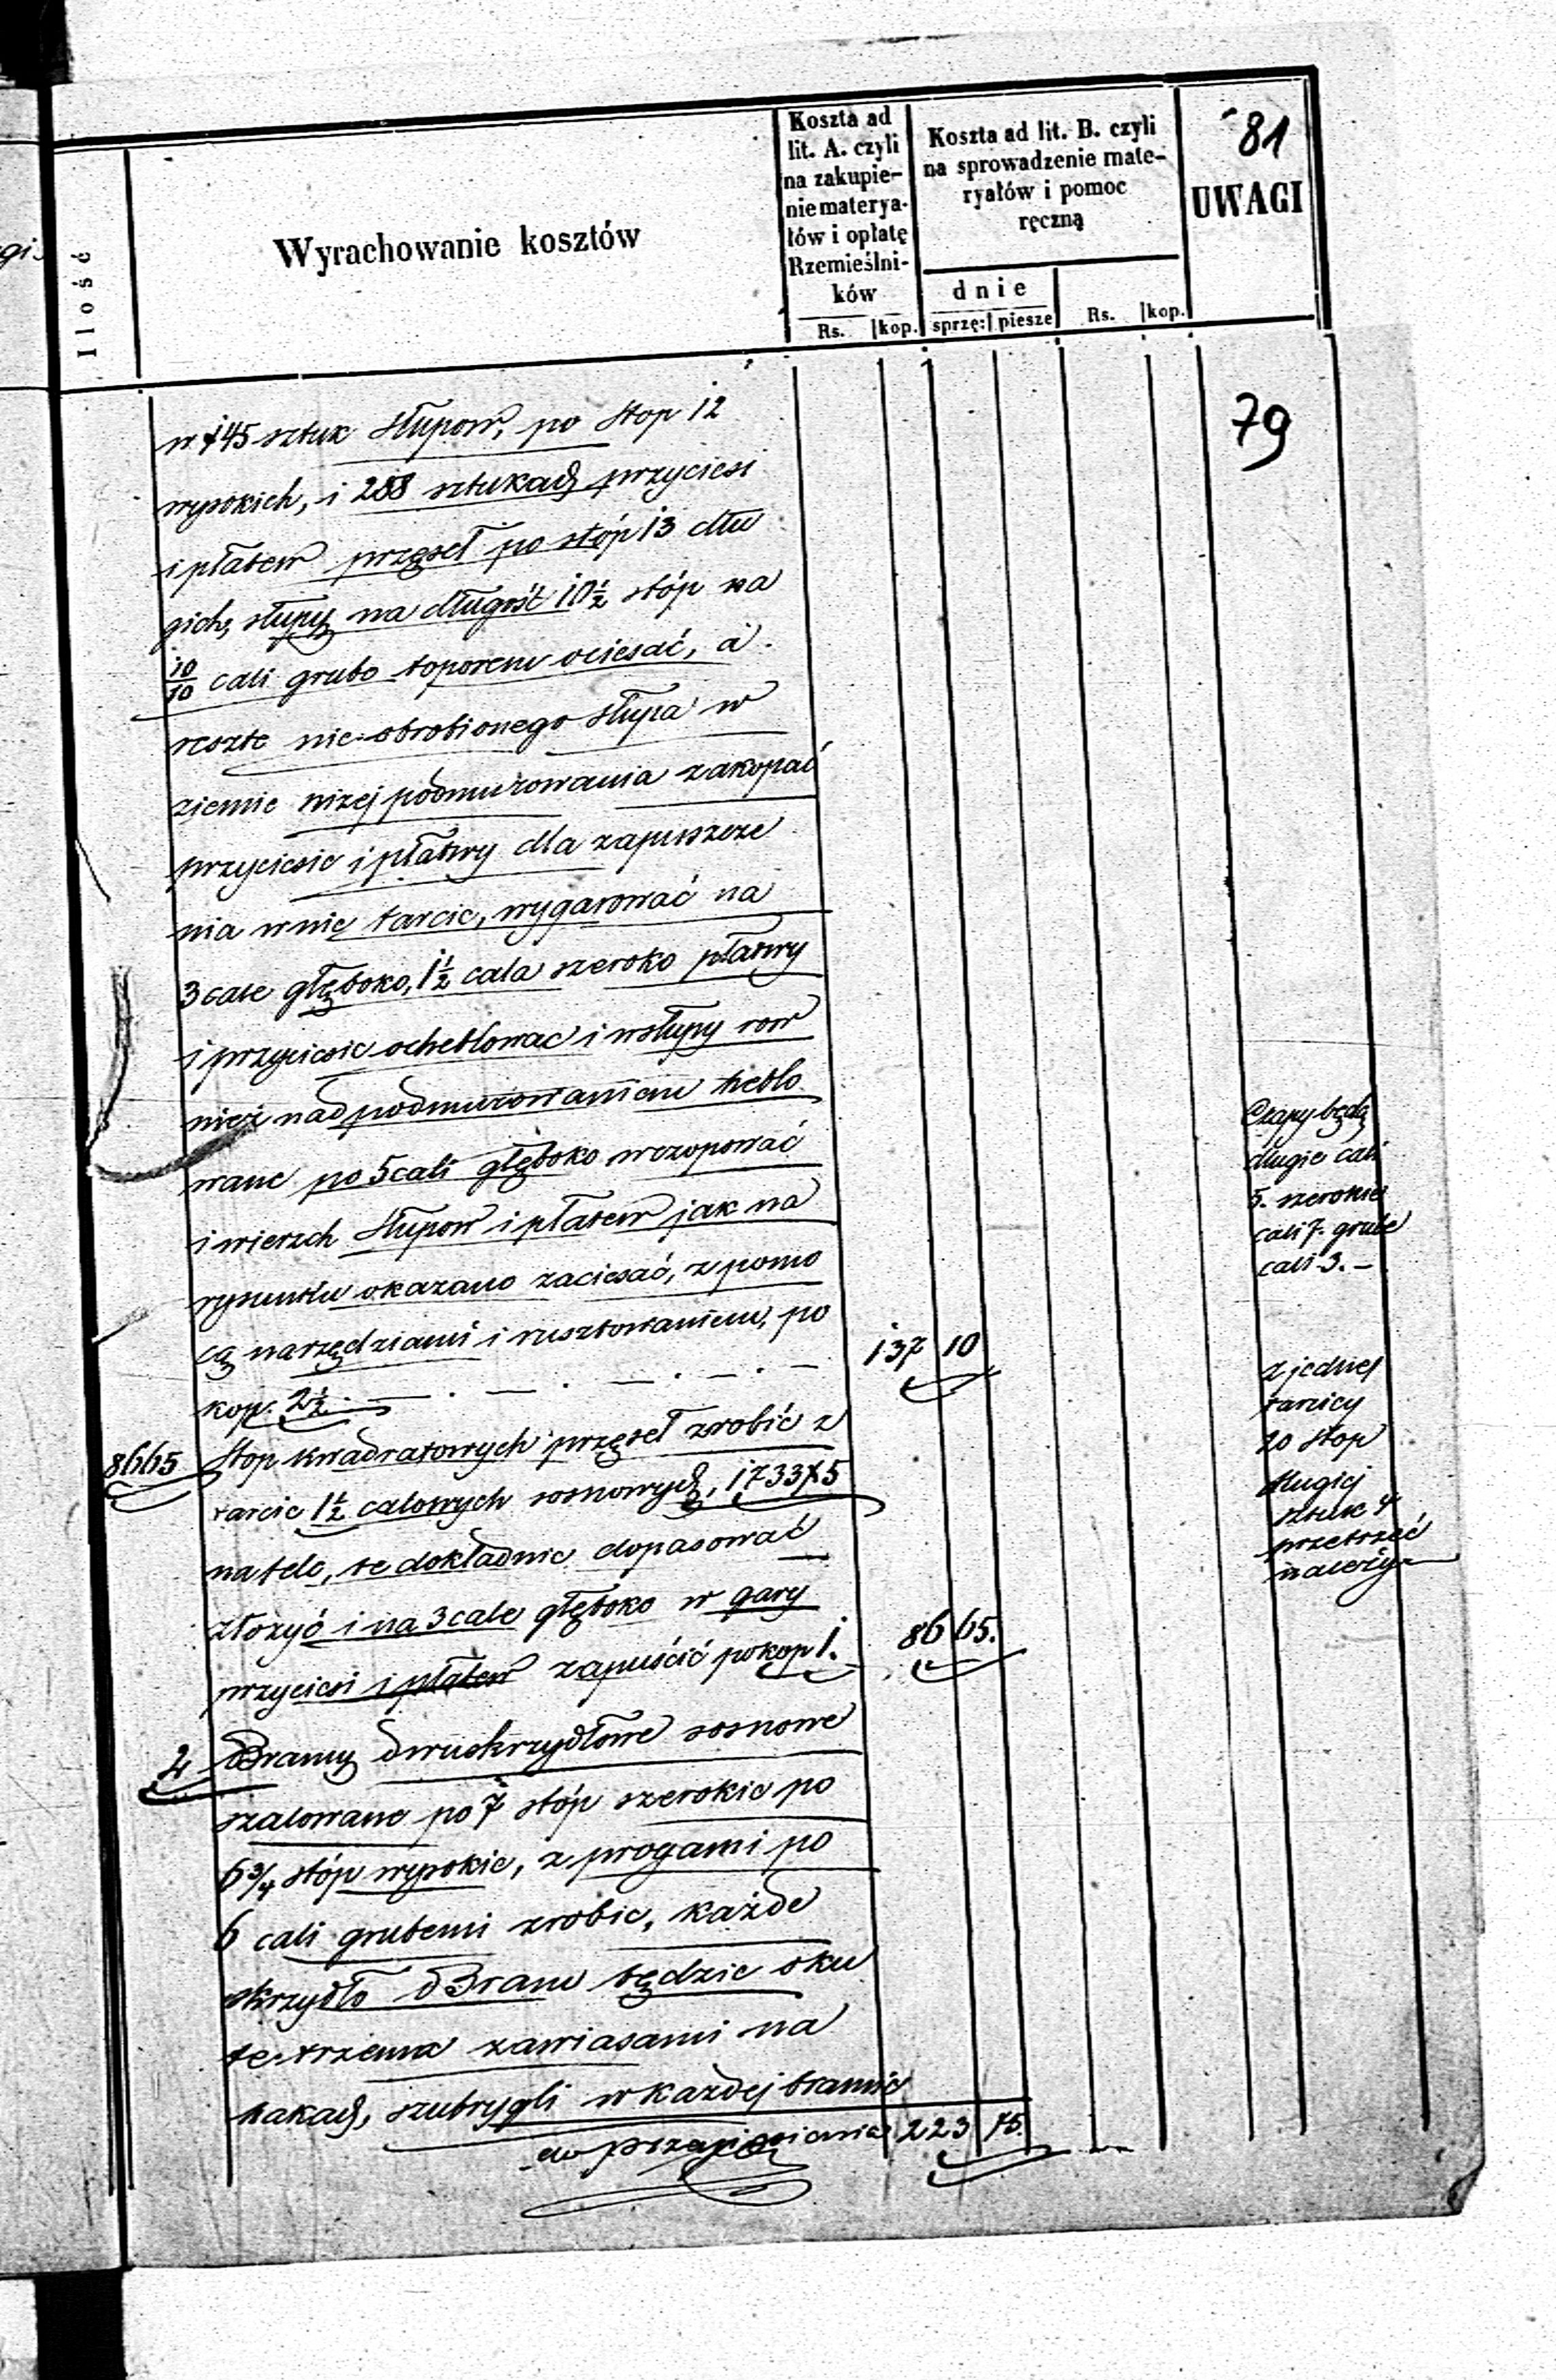 81
Ilość
Wyrachowanie kosztów
Koszta ad
lit. A. czyli
na zakupie-
nie materya-
łów i opłatę
Rzemieślni-
ków
Rs. kop.
Koszta ad lit. B. czyli
na sprowadzenie mate-
ryałów i pomoc
ręczną
dnie
sprzę: piesze Rs. kop.
UWAGI
79
w 145 sztuk słupow, po stop 12
wysokich, i 288 sztukach przyciesi
i płatew przęseł po stóp 13 dłu
gich, słupy na długość 10½ stóp na
10/10 cali grubo toporem ociesać, a
reszte nie obrobionego słupa w
ziemie niżej podmurowania zakopać
przyciesie i płatwy dla zapuszcze
nia w nie tarcic, wygarować na
3 cale głęboko, 1½ cala szeroko płatwy
i przyciesie oheblować i w słupy rów
nież nad podmurowaniem heblo
wane po 5 cali głęboko wczopować
i wierzch słupow i płatew jak na
rysunku okazano zaciesać, z pomo
cą narzędziami i rusztowaniem, po
kop. 2½ . — . — . — . — . — 137 10
8665 stop kwadratowych przęseł zrobić z
tarcic 1½ calowych sosnowych, 1733X5
na tele, te dokładnie dopasować
złożyć i na 3 cale głęboko w gary
przyciesi i płatew zapuścić po kop 1. 86 65.
2 Bramy dwuskrzydłowe sosnowe
szalowane po 7 stóp szerokie po
6 3/4 stóp wysokie, z progami po
6 cali grubemi zrobic, każde
skrzydło Bram będzie oku
te trzema zawiasami na
hakach, szubrygli w każdej bramie
do przeniesienia 223 75.
Czapy będą
długie cali
5. szerokie
cali 7. grube
cali 3. —
z jednej
tarcicy
20 stop
długiej
sztuk 4
przetrzeć
należy